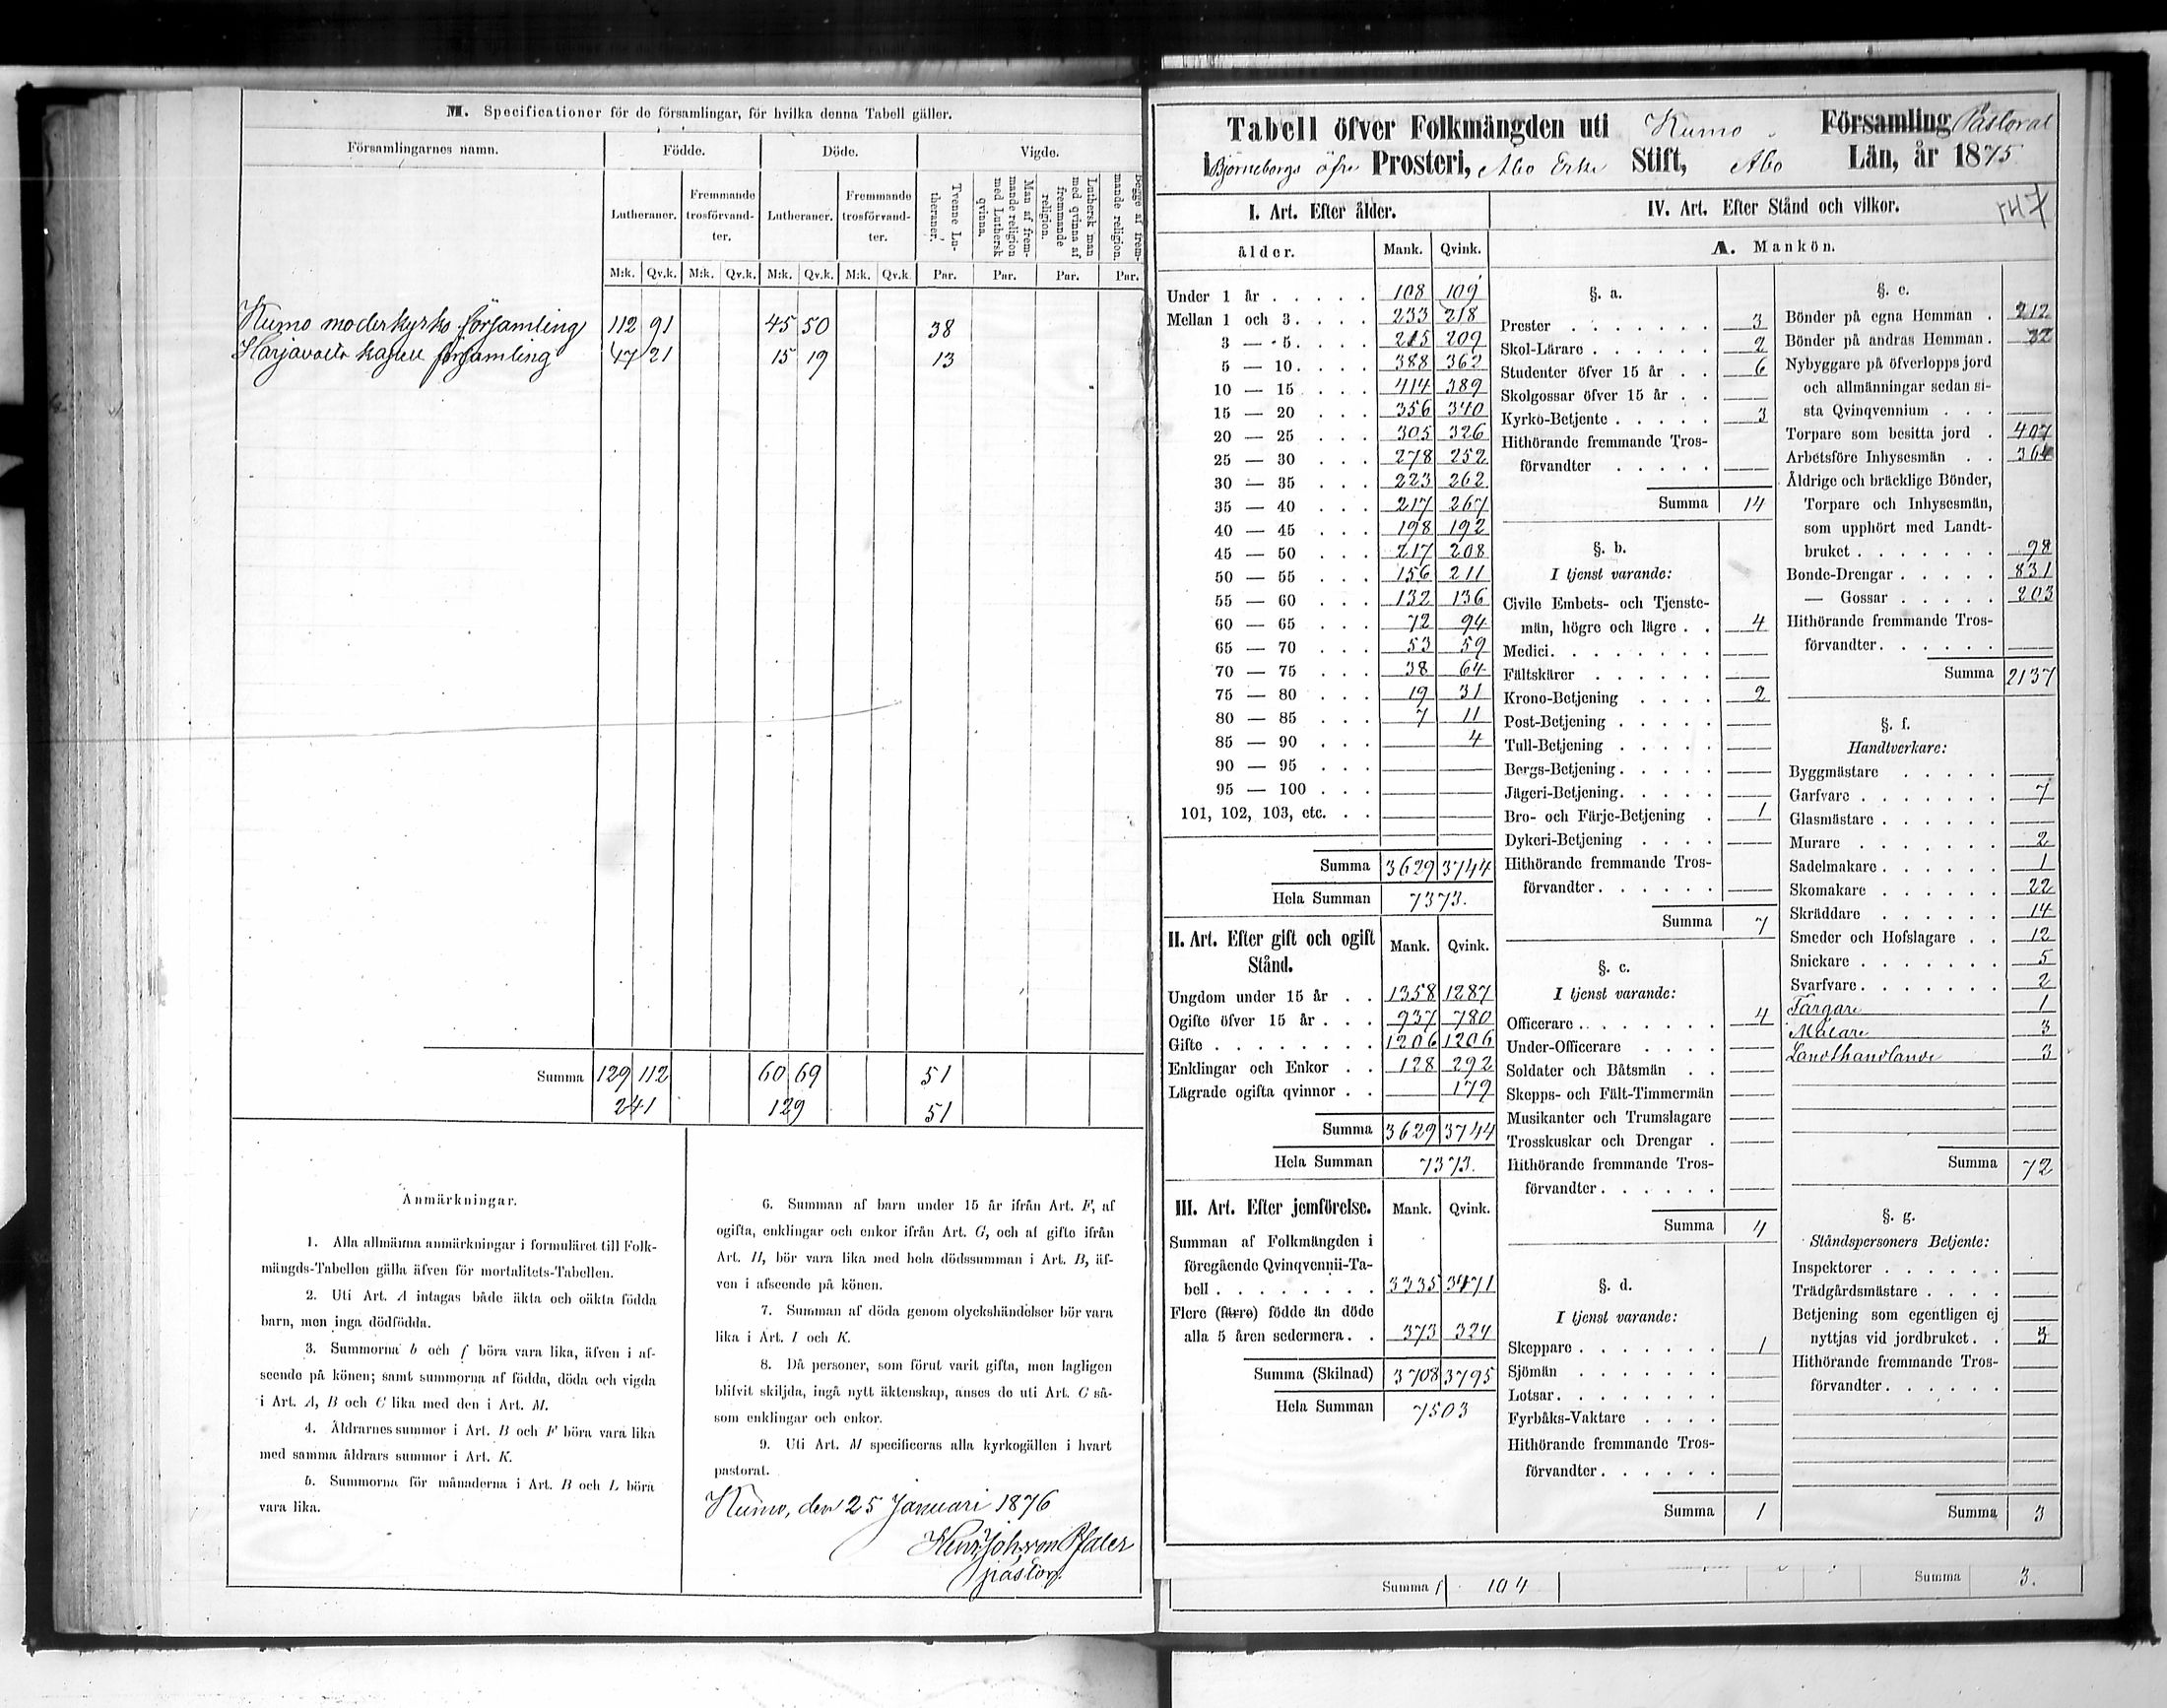 M. Specificationer för de församlingar, för hvilka denna Tabell gäller.
Församlingarnes namn. Födde. Döde. Vigde.
Lutheraner. Fremmande trosförvandter. Lutheraner. Fremmande trosförvandter. Tvenne Lutheraner. Man af fremmande religion med Luthersk qvinna. Luthersk man med qvinna af fremmande religion. Begge af fremmande religion.
M:k. Qv.k. M:k. Qv.k. M:k. Qv.k. M:k. Qv.k. Par. Par. Par. Par.
Kumo moderkyrko församling 112 91 45 50 38
Harjavalta kapell församling 47 21 15 19 13
Summa 129 112 60 69 51
241 129 51
Anmärkningar.
1. Alla allmänna anmärkningar i formuläret till Folk-
mängds-Tabellen gälla äfven för mortalitets-Tabellen.
2. Uti Art. A intagas både äkta och oäkta födda
barn, men inga dödfödda.
3. Summorna b och f böra vara lika, äfven i af-
seende på könen; samt summorna af födda, döda och vigda
i Art. A, B och C lika med den i Art. M.
4. Åldrarnes summor i Art. B och F böra vara lika
med samma åldrars summor i Art. K.
5. Summorna för månaderna i Art. B och L böra
vara lika.
6. Summan af barn under 15 år ifrån Art. F, af
ogifta, enklingar och enkor ifrån Art. G, och af gifte ifrån
Art. H, bör vara lika med hela dödssumman i Art. B, äf-
ven i afseende på könen.
7. Summan af döda genom olyckshändelser bör vara
lika i Art. I och K.
8. Då personer, som förut varit gifta, men lagligen
blifvit skiljda, ingå nytt äktenskap, anses de uti Art. C så-
som enklingar och enkor.
9. Uti Art. M specificeras alla kyrkogällen i hvart
pastorat.
Kumo, den 25 Januari 1876
Henr. Joh. von Pfaler
pastor.
Tabell öfver Folkmängden uti Kumo Församling Pastorat
i Björneborgs öfre Prosteri, Åbo Erke Stift, Åbo Län, år 1875.
147
I. Art. Efter ålder.
ålder. Mank. Qvink.
Under 1 år 108 109
Mellan 1 och 3 233 218
3 — 5 215 209
5 — 10 388 362
10 — 15 414 389
15 — 20 356 340
20 — 25 305 326
25 — 30 278 252
30 — 35 223 262
35 — 40 217 267
40 — 45 198 192
45 — 50 217 208
50 — 55 156 211
55 — 60 132 136
60 — 65 72 94
65 — 70 53 59
70 — 75 38 64
75 — 80 19 31
80 — 85 7 11
85 — 90 4
90 — 95
95 — 100
101, 102, 103, etc.
Summa 3629 3744
Hela Summan 7373.
II. Art. Efter gift och ogift Stånd. Mank. Qvink.
Ungdom under 15 år 1358 1287
Ogifte öfver 15 år 937 780
Gifte 1206 1206
Enklingar och Enkor 128 292
Lägrade ogifta qvinnor 179
Summa 3629 3744
Hela Summan 7373.
III. Art. Efter jemförelse. Mank. Qvink.
Summan af Folkmängden i
föregående Qvinqvennii-Ta-
bell 3335 3471
Flere (färre) födde än döde
alla 5 åren sedermera 373 324
Summa (Skilnad) 3708 3795
Hela Summan 7503
IV. Art. Efter Stånd och vilkor.
A. Mankön.
§. a.
Prester 3
Skol-Lärare 2
Studenter öfver 15 år 6
Skolgossar öfver 15 år
Kyrko-Betjente 3
Hithörande fremmande Tros-
förvandter
Summa 14
§. b.
I tjenst varande:
Civile Embets- och Tjenste-
män, högre och lägre 4
Medici
Fältskärer
Krono-Betjening 2
Post-Betjening
Tull-Betjening
Bergs-Betjening
Jägeri-Betjening
Bro- och Färje-Betjening 1
Dykeri-Betjening
Hithörande fremmande Tros-
förvandter
Summa 7
§. c.
I tjenst varande:
Officerare 4
Under-Officerare
Soldater och Båtsmän
Skepps- och Fält-Timmermän
Musikanter och Trumslagare
Trosskuskar och Drengar
Hithörande fremmande Tros-
förvandter
Summa 4
§. d.
I tjenst varande:
Skeppare 1
Sjömän
Lotsar
Fyrbåks-Vaktare
Hithörande fremmande Tros-
förvandter
Summa 1
§. e.
Bönder på egna Hemman 212
Bönder på andras Hemman 22
Nybyggare på öfverlopps jord
och allmänningar sedan si-
sta Qvinqvennium
Torpare som besitta jord 407
Arbetsföre Inhysesmän 364
Åldrige och bräcklige Bönder,
Torpare och Inhysesmän,
som upphört med Landt-
bruket 98
Bonde-Drengar 831
— Gossar 203
Hithörande fremmande Tros-
förvandter
Summa 2137
§. f.
Handtverkare:
Byggmästare
Garfvare 7
Glasmästare
Murare 2
Sadelmakare 1
Skomakare 22
Skräddare 14
Smeder och Hofslagare 12
Snickare 5
Svarfvare 2
Färgare 1
Målare 3
Landthandlande 3
Summa 72
§. g.
Ståndspersoners Betjente:
Inspektorer
Trädgårdsmästare
Betjening som egentligen ej
nyttjas vid jordbruket 3
Hithörande fremmande Tros-
förvandter
Summa 3
Summa 104 Summa 3.